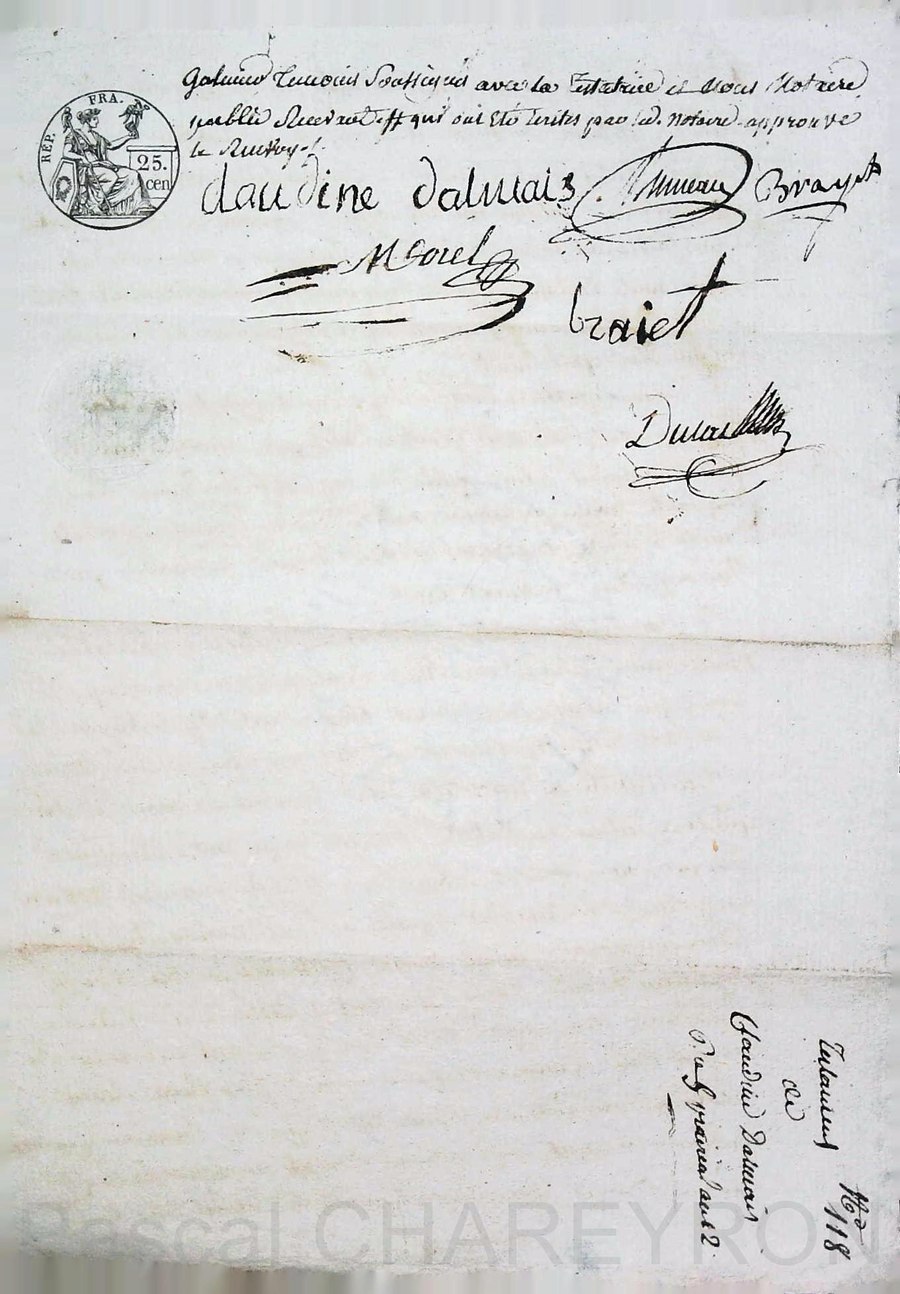 RÉP. FRA.
25.
cen
Galmier témoins Soussignés avec la Testatrice et Nous Notaire
public Recevant ff qui ont été écrites par led. Notaire approuvé
le Renvoy f.
claudine dalmais Brayet
Morel
braiet
Testament
de
Claudine Dalmais
an 12
No
118
Pascal CHAREYRON